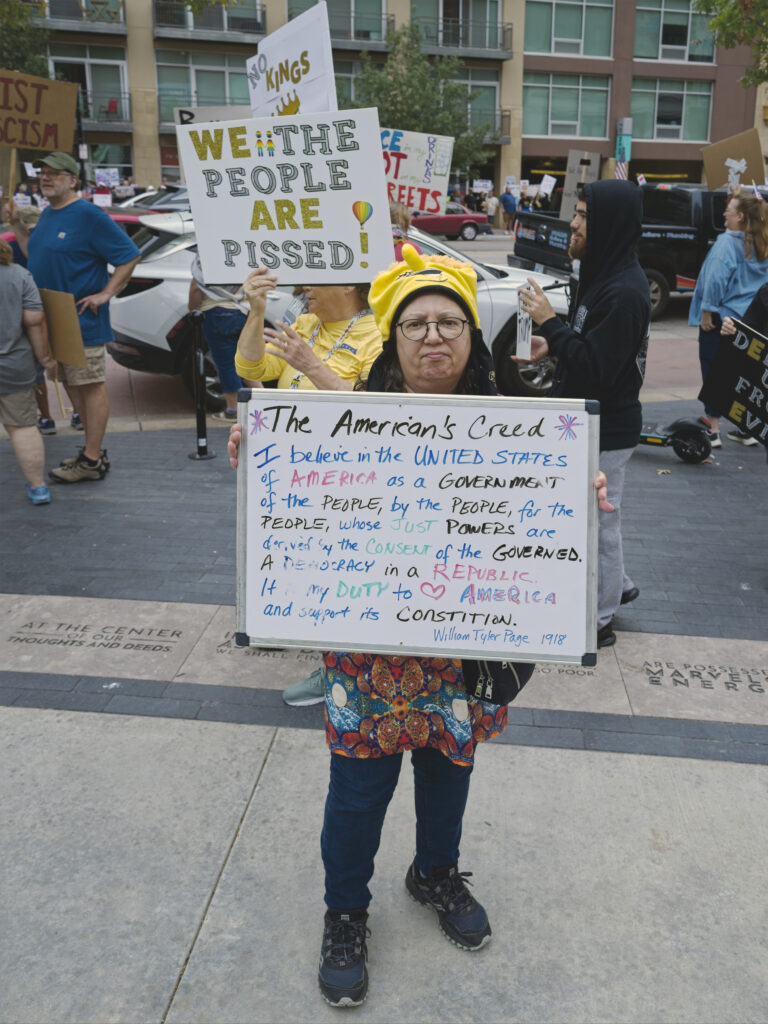 NO
KINGS
IST
FASCISM
WE THE
PEOPLE
ARE
PISSED!
The American's Creed
I believe in the UNITED STATES
of AMERICA as a GOVERNMENT
of the PEOPLE, by the PEOPLE, for the
PEOPLE, whose JUST POWERS are
derived by the CONSENT of the GOVERNED.
A DEMOCRACY in a REPUBLIC.
It is my DUTY to ♡ AMERICA
and support its CONSTITION.
William Tyler Page 1918
AT THE CENTER
OF OUR
THOUGHTS AND DEEDS
WE SHALL FIN
SO POOR
ARE POSSESS